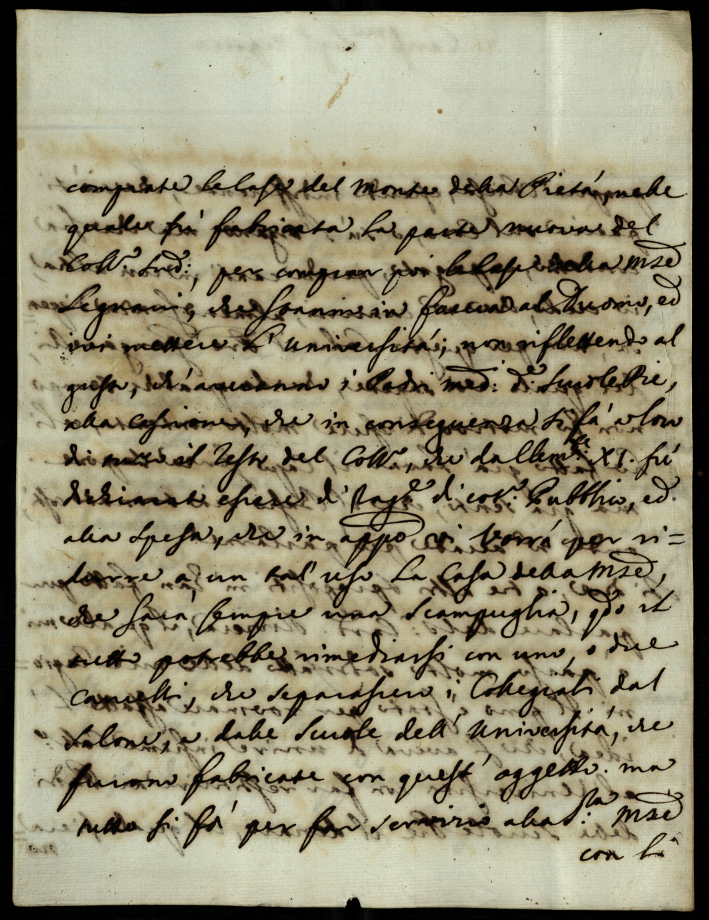 comprate le Case del Monte della Pietà, nelle
quali fù fabricata la parte nuova del
Coll.º Sud:, per comprar poi le Case della Msd
Legrani, che stanno in faccia al Duomo, ed
ivi mettere l'Università; non riflettendo al
gusto, ch'averanno i Padri med: d.e Scuole Pie,
alla cessione, che in conseguenza si fà a loro
di tutto il resto del Coll.º, che da Clem.te XI. fù
dichiarato essere di rag.e di cot.º Pubblico, ed
alla spesa, che in appo vi vorrà per ri=
durre a un tal'uso la Casa della Msd,
che sarà sempre una scampuglia, qdo il
tutto potrebbe rimediarsi con uno, o due
cancelli, che separassero i Collegiali dal
Salone, e dalle Scuole dell'Università, che
furono fabricate con quest'oggetto. ma
tutto si fà per far servizio alla sta: Msd
con li